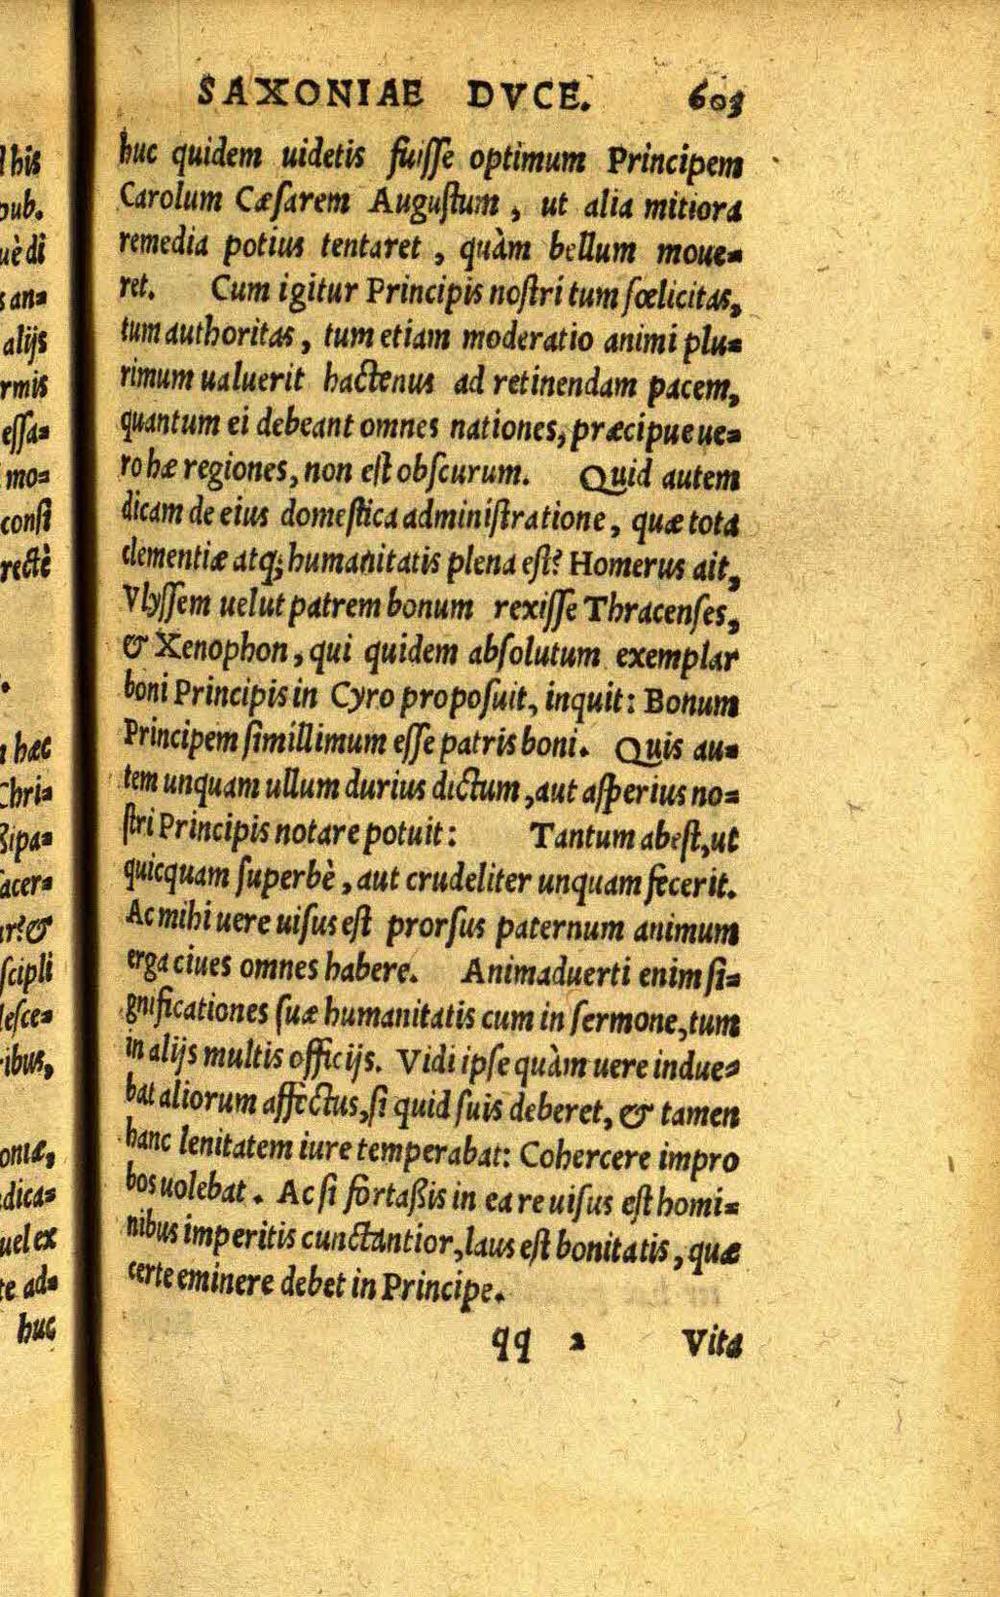 SAXONIAE DVCE. 603
huc quidem uidetis fuisse optimum Principem
Carolum Cæsarem Augustum, ut alia mitiora
remedia potius tentaret, quàm bellum moue=
ret. Cum igitur Principis nostri tum fœlicitas,
tum authoritas, tum etiam moderatio animi plu=
rimum ualuerit hactenus ad retinendam pacem,
quantum ei debeant omnes nationes, præcipue ue=
ro hæ regiones, non est obscurum. Quid autem
dicam de eius domestica administratione, quæ tota
clementiæ atq; humanitatis plena est? Homerus ait,
Vlyssem uelut patrem bonum rexisse Thracenses,
& Xenophon, qui quidem absolutum exemplar
boni Principis in Cyro proposuit, inquit: Bonum
Principem simillimum esse patris boni. Quis au=
tem unquam ullum durius dictum, aut asperius no=
stri Principis notare potuit: Tantum abest, ut
quicquam superbè, aut crudeliter unquam fecerit.
Ac mihi uere uisus est prorsus paternum animum
erga ciues omnes habere. Animaduerti enim si=
gnificationes suæ humanitatis cum in sermone, tum
in alijs multis officijs. Vidi ipse quàm uere indue=
bat aliorum affectus, si quid suis deberet, & tamen
hanc lenitatem iure temperabat: Cohercere impro
bos uolebat. Ac si fortaßis in ea re uisus est homi=
nibus imperitis cunctantior, laus est bonitatis, quæ
certe eminere debet in Principe.
qq 2 Vita
his
pub.
uè di
s an=
alijs
rmis
essa=
mo=
consi
rectè
hæc
Chri=
Ripa=
acer=
ur? &
scipli
lesce=
ribus,
oniæ,
dica=
uel ex
te ad=
huc